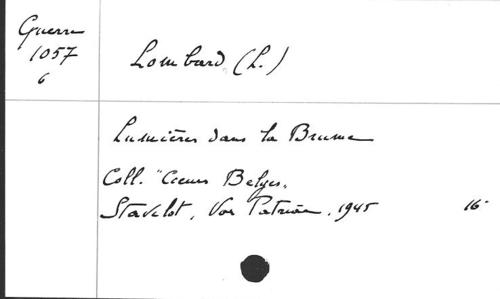 Guerre
1057
6
Lombard (L.)
Lumières dans la Brume
Coll. "Cœurs Belges"
Stavelot, Vox Patriae, 1945 16°